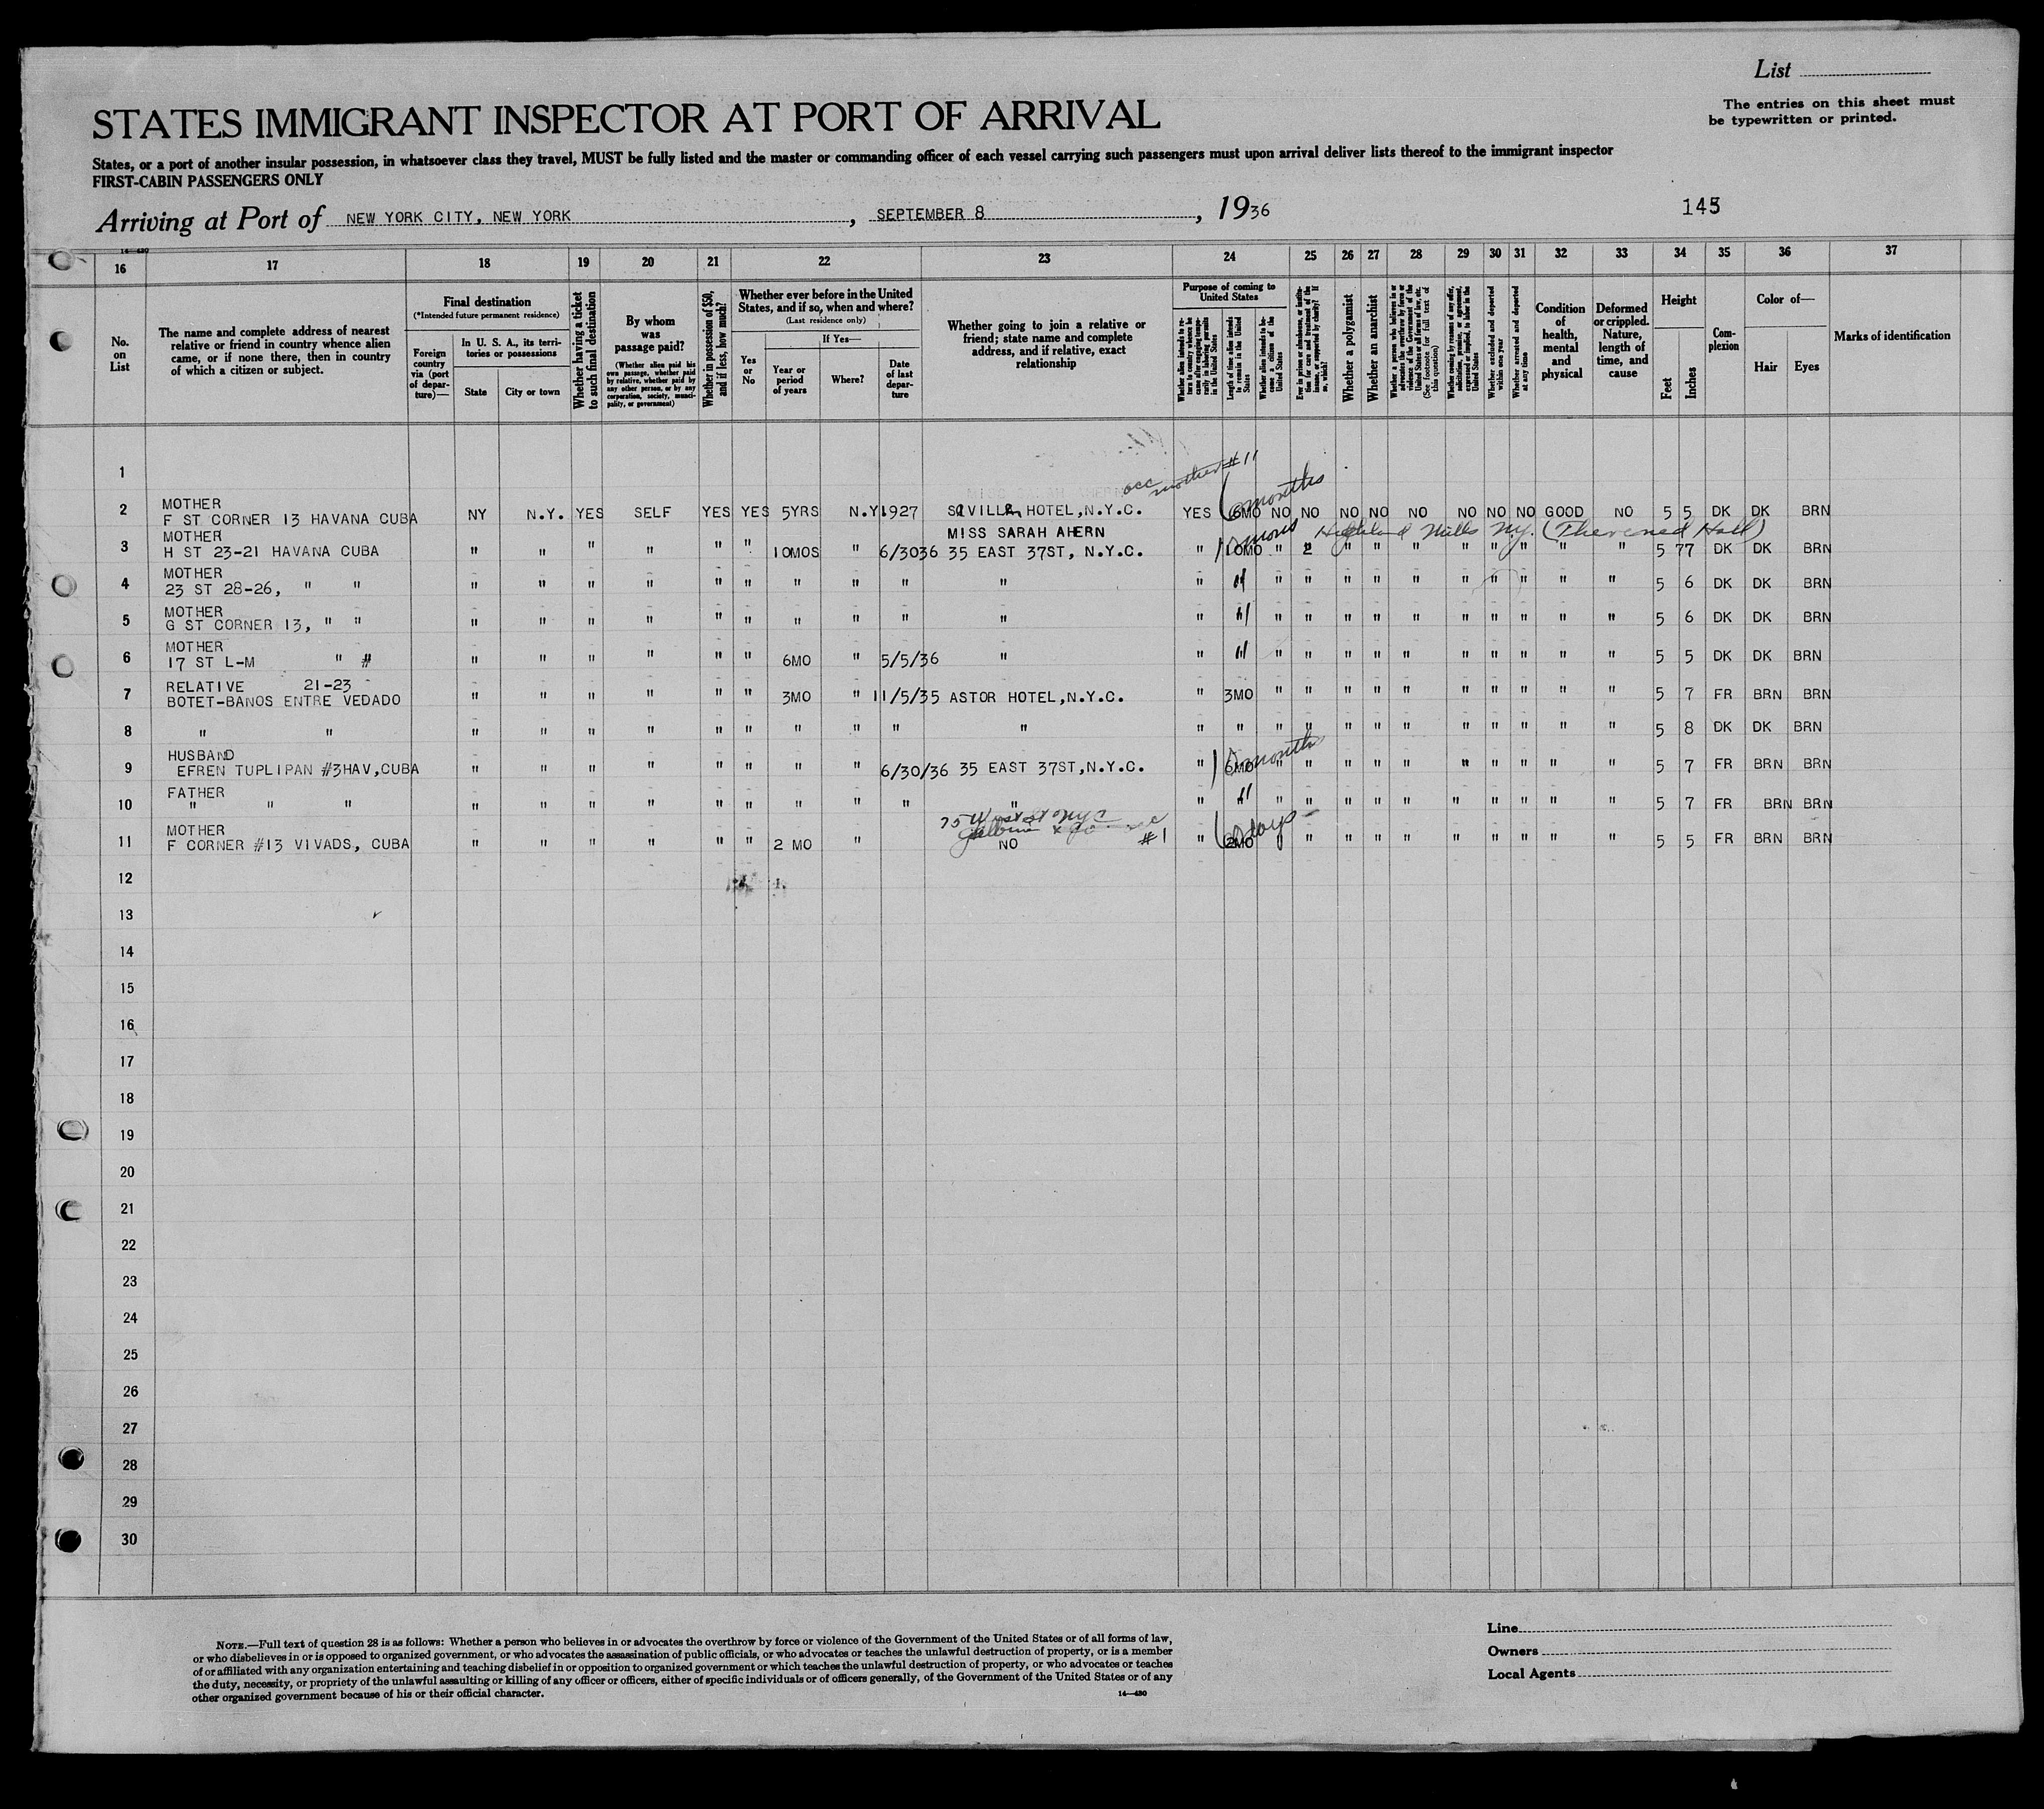 List
The entries on this sheet must
be typewritten or printed.
STATES IMMIGRANT INSPECTOR AT PORT OF ARRIVAL
States, or a port of another insular possession, in whatsoever class they travel, MUST be fully listed and the master or commanding officer of each vessel carrying such passengers must upon arrival deliver lists thereof to the immigrant inspector
FIRST-CABIN PASSENGERS ONLY
Arriving at Port of NEW YORK CITY, NEW YORK, SEPTEMBER 8, 1936 145
14—430
16 17 18 19 20 21 22 23 24 25 26 27 28 29 30 31 32 33 34 35 36 37
No. on List
The name and complete address of nearest relative or friend in country whence alien came, or if none there, then in country of which a citizen or subject.
Final destination
(*Intended future permanent residence)
Foreign country via (port of departure)—
In U. S. A., its territories or possessions
State
City or town
Whether having a ticket to such final destination
By whom was passage paid?
(Whether alien paid his own passage, whether paid by relative, whether paid by any other person, or by any corporation, society, municipality, or government)
Whether in possession of $50, and if less, how much?
Whether ever before in the United States, and if so, when and where?
(Last residence only)
Yes or No
If Yes—
Year or period of years
Where?
Date of last departure
Whether going to join a relative or friend; state name and complete address, and if relative, exact relationship
Purpose of coming to United States
Whether alien intends to return to country whence he came after engaging temporarily in laboring pursuits in the United States
Length of time alien intends to remain in the United States
Whether alien intends to become a citizen of the United States
Ever in prison or almshouse, or institution for care and treatment of the insane, or supported by charity? If so, which?
Whether a polygamist
Whether an anarchist
Whether a person who believes in or advocates the overthrow by force or violence of the Government of the United States or all forms of law, etc. (See footnote for full text of this question)
Whether coming by reasons of any offer, solicitation, promise, or agreement, expressed or implied, to labor in the United States
Whether excluded and deported within one year
Whether arrested and deported at any time
Condition of health, mental and physical
Deformed or crippled. Nature, length of time, and cause
Height
Feet
Inches
Complexion
Color of—
Hair
Eyes
Marks of identification
1
acc mother #11
6 months
2 MOTHER
F ST CORNER 13 HAVANA CUBA NY N.Y. YES SELF YES YES 5YRS N.Y. 1927 HOTEL,N.Y.C. YES 6MO NO NO NO NO NO NO NO NO GOOD NO 5 5 DK DK BRN
MISS SARAH AHERN
10 mons Highland Mills N.Y. Hall)
3 MOTHER
H ST 23-21 HAVANA CUBA " " " " " " 10MOS " 6/3036 35 EAST 37ST, N.Y.C. " 10MO " " " " " " " " " 5 77 DK DK BRN
4 MOTHER
23 ST 28-26, " " " " " " " " " " " " " " " " " " " " " " " " 5 6 DK DK BRN
5 MOTHER
G ST CORNER 13, " " " " " " " " " " " " " " " " " " " " " " " " 5 6 DK DK BRN
6 MOTHER
17 ST L-M " # " " " " " " 6MO " 5/5/36 " " " " " " " " " " " " " 5 5 DK DK BRN
7 RELATIVE 21-23
BOTET-BANOS ENTRE VEDADO " " " " " " 3MO " 11/5/35 ASTOR HOTEL,N.Y.C. " 3MO " " " " " " " " " " 5 7 FR BRN BRN
8 " " " " " " " " " " " " " " " " " " " " " " " " 5 8 DK DK BRN
10 months
9 HUSBAND
EFREN TUPLIPAN #3HAV,CUBA " " " " " " " " 6/30/36 35 EAST 37ST,N.Y.C. " 6MO " " " " " " " " " " 5 7 FR BRN BRN
10 FATHER
" " " " " " " " " " " " " " " " " " " " " " " " " 5 7 FR BRN BRN
75 West St NYC
60 days
11 MOTHER
F CORNER #13 VIVADS, CUBA " " " " " " 2 MO " NO #1 " 2MO " " " " " " " " " " 5 5 FR BRN BRN
12
13
14
15
16
17
18
19
20
21
22
23
24
25
26
27
28
29
30
NOTE.—Full text of question 28 is as follows: Whether a person who believes in or advocates the overthrow by force or violence of the Government of the United States or of all forms of law,
or who disbelieves in or is opposed to organized government, or who advocates the assassination of public officials, or who advocates or teaches the unlawful destruction of property, or is a member
of or affiliated with any organization entertaining and teaching disbelief in or opposition to organized government or which teaches the unlawful destruction of property, or who advocates or teaches
the duty, necessity, or propriety of the unlawful assaulting or killing of any officer or officers, either of specific individuals or of officers generally, of the Government of the United States or of any
other organized government because of his or their official character.
14—430
Line
Owners
Local Agents